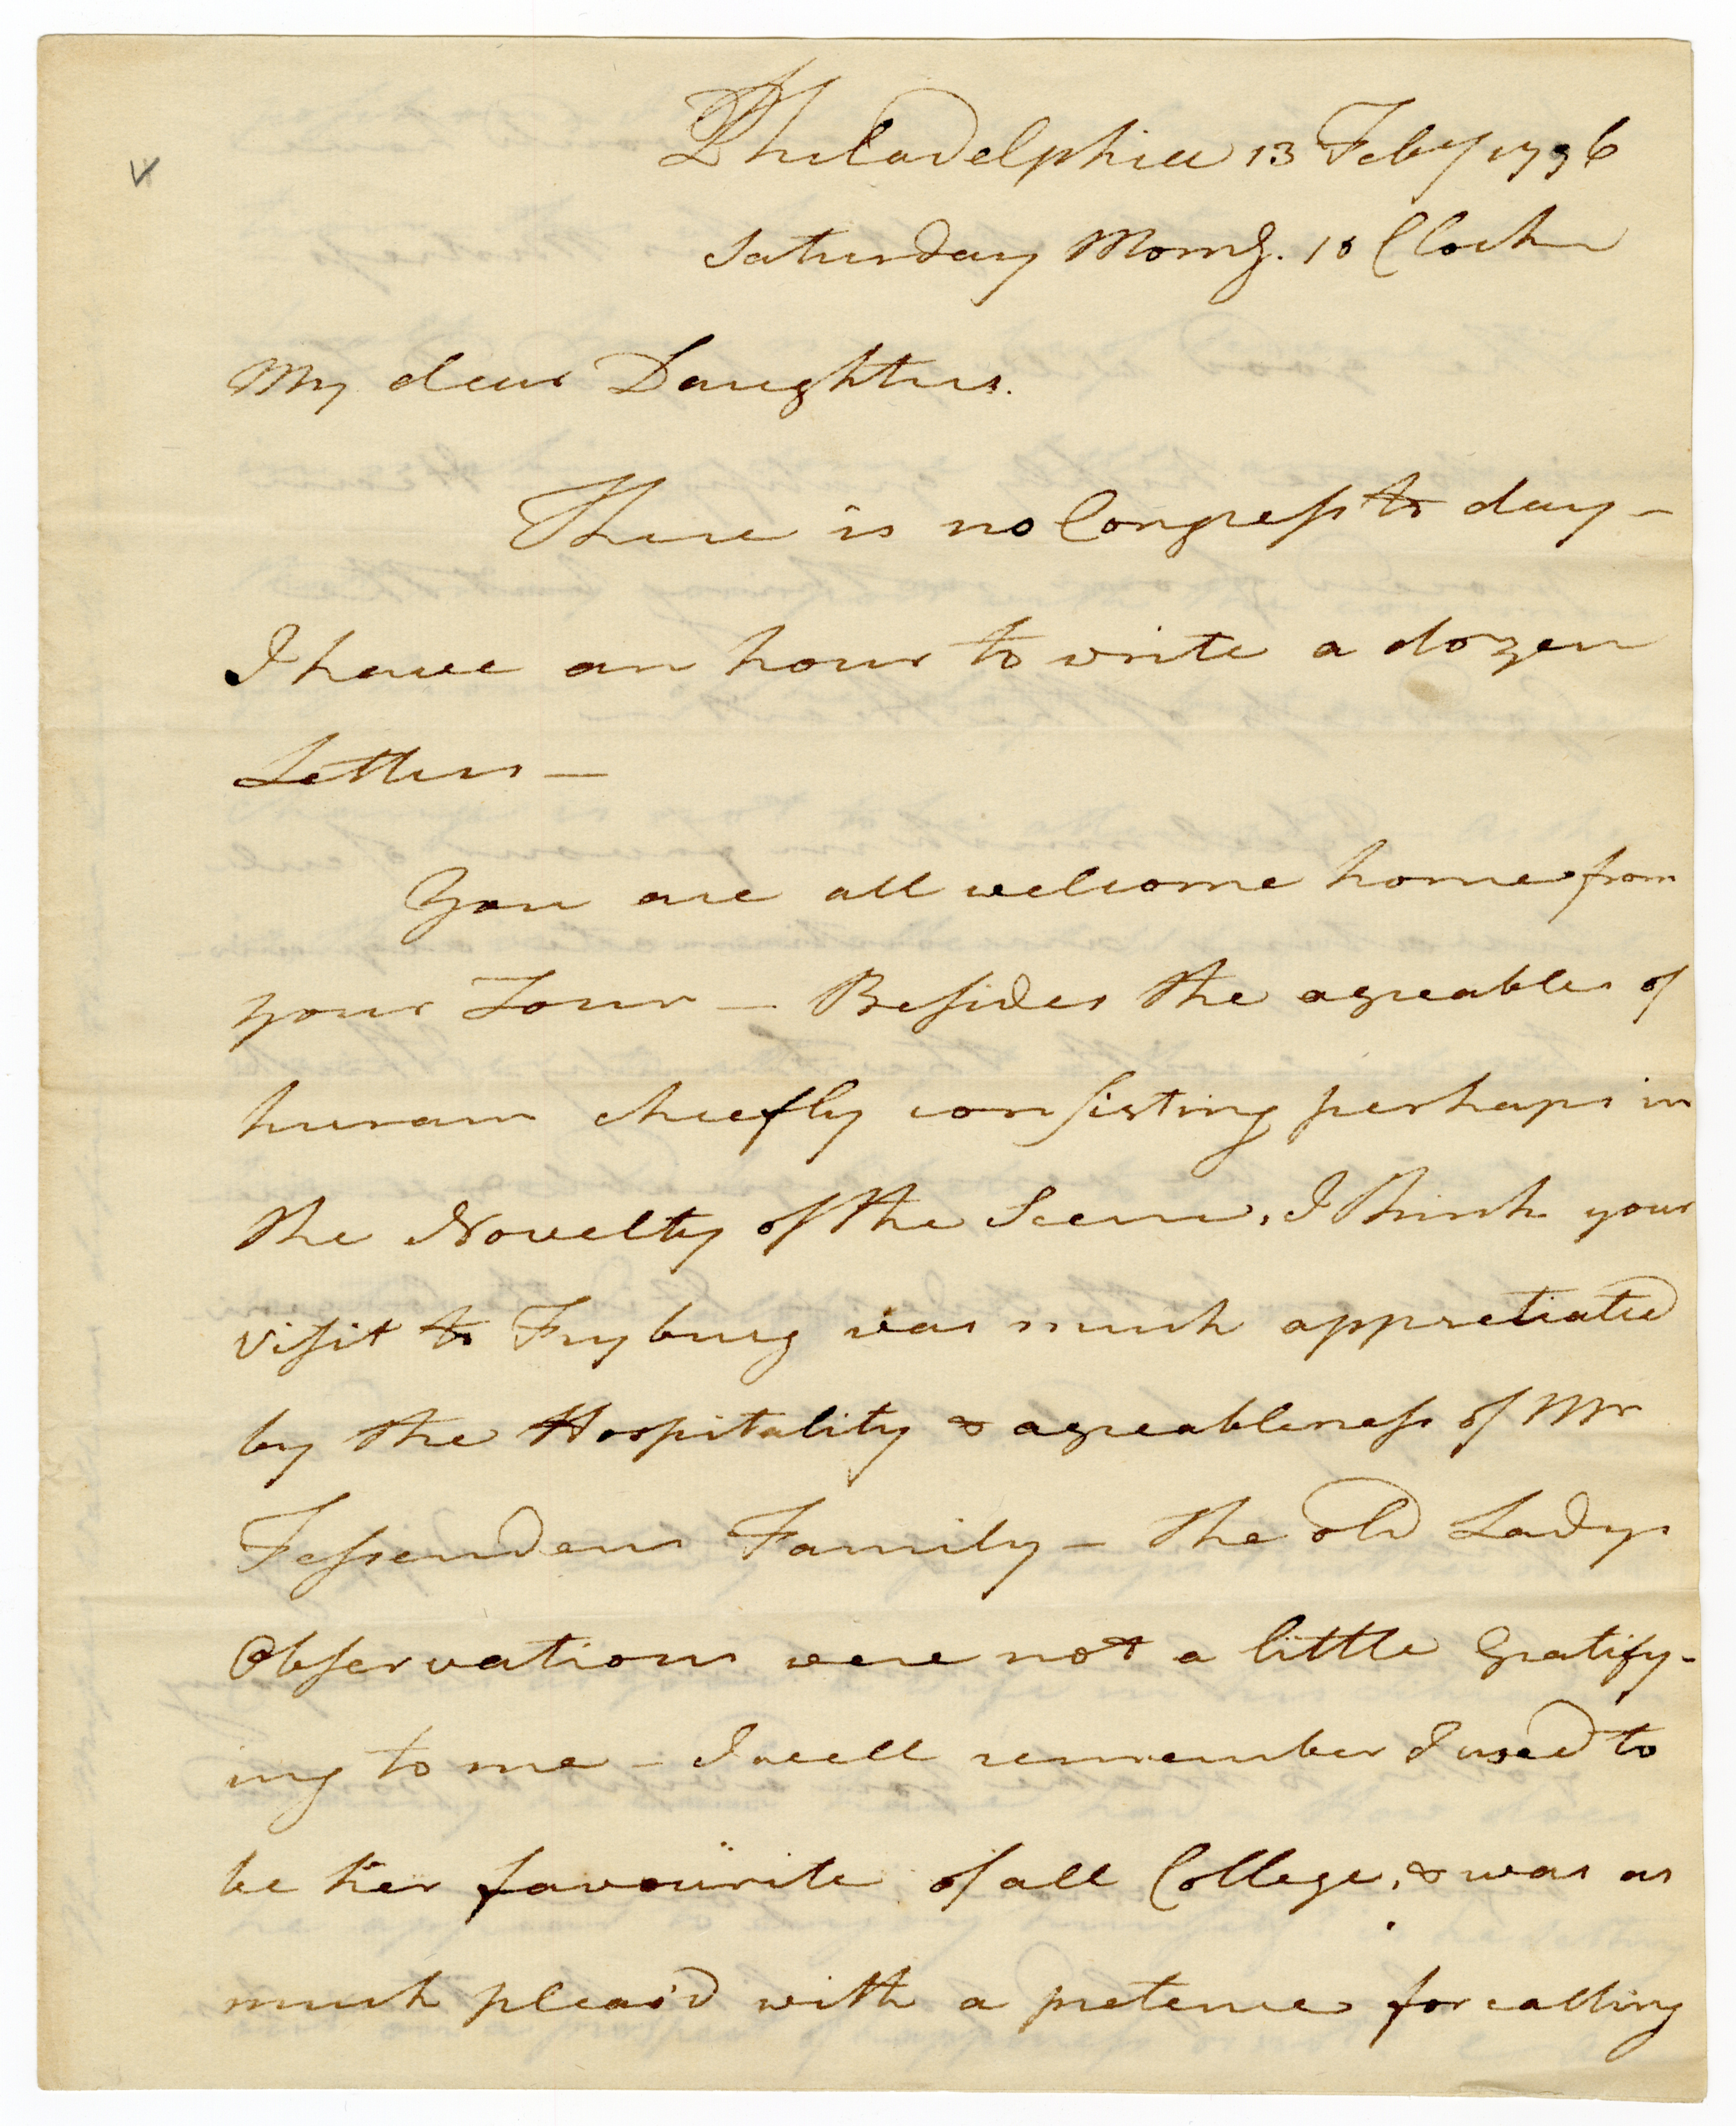 Philadelphia 13 Feby 1796
Saturday Morng. 10 Clock
My dear Daughters.
There is no Congress to day –
I have an hour to write a dozen
Letters –
You are all welcome home from
your Tour – Besides the agreables of
hiram chiefly consisting perhaps in
the Novelty of the Scene, I think your
visit to Fryburg was much appretiated
by the Hospitality & agreableness of Mr
Fessendens Family – the old Ladys
Observations were not a little Gratify-
ing to me – I well remember I used to
be her favourite of all College, & was as
much pleas'd with a pretence for calling